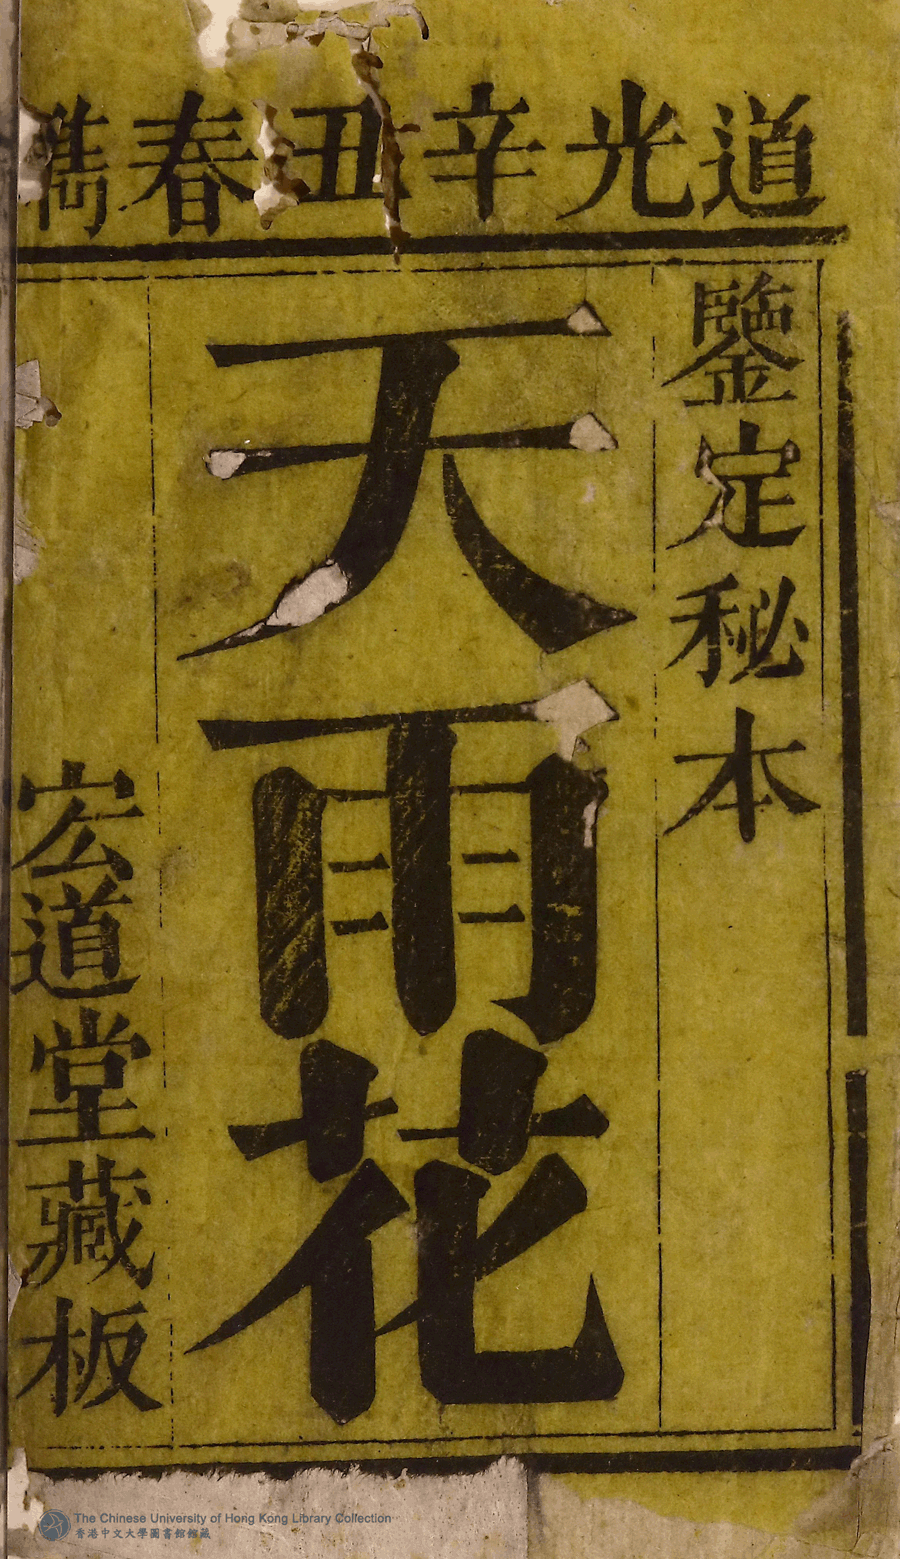 道光辛丑春鐫
鑒定秘本
天雨花
宏道堂藏板
The Chinese University of Hong Kong Library Collection
香港中文大學圖書館館藏